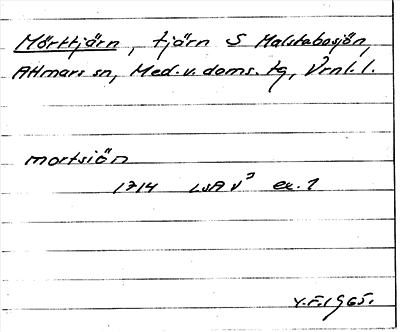 Mörttjärn, tjärn S Malstabosjön,
Attmars sn, Med. v. doms. tg, Vrnl. l.
mortsiön
1714 LSA V³ ex. 1
Y.F. 1965.